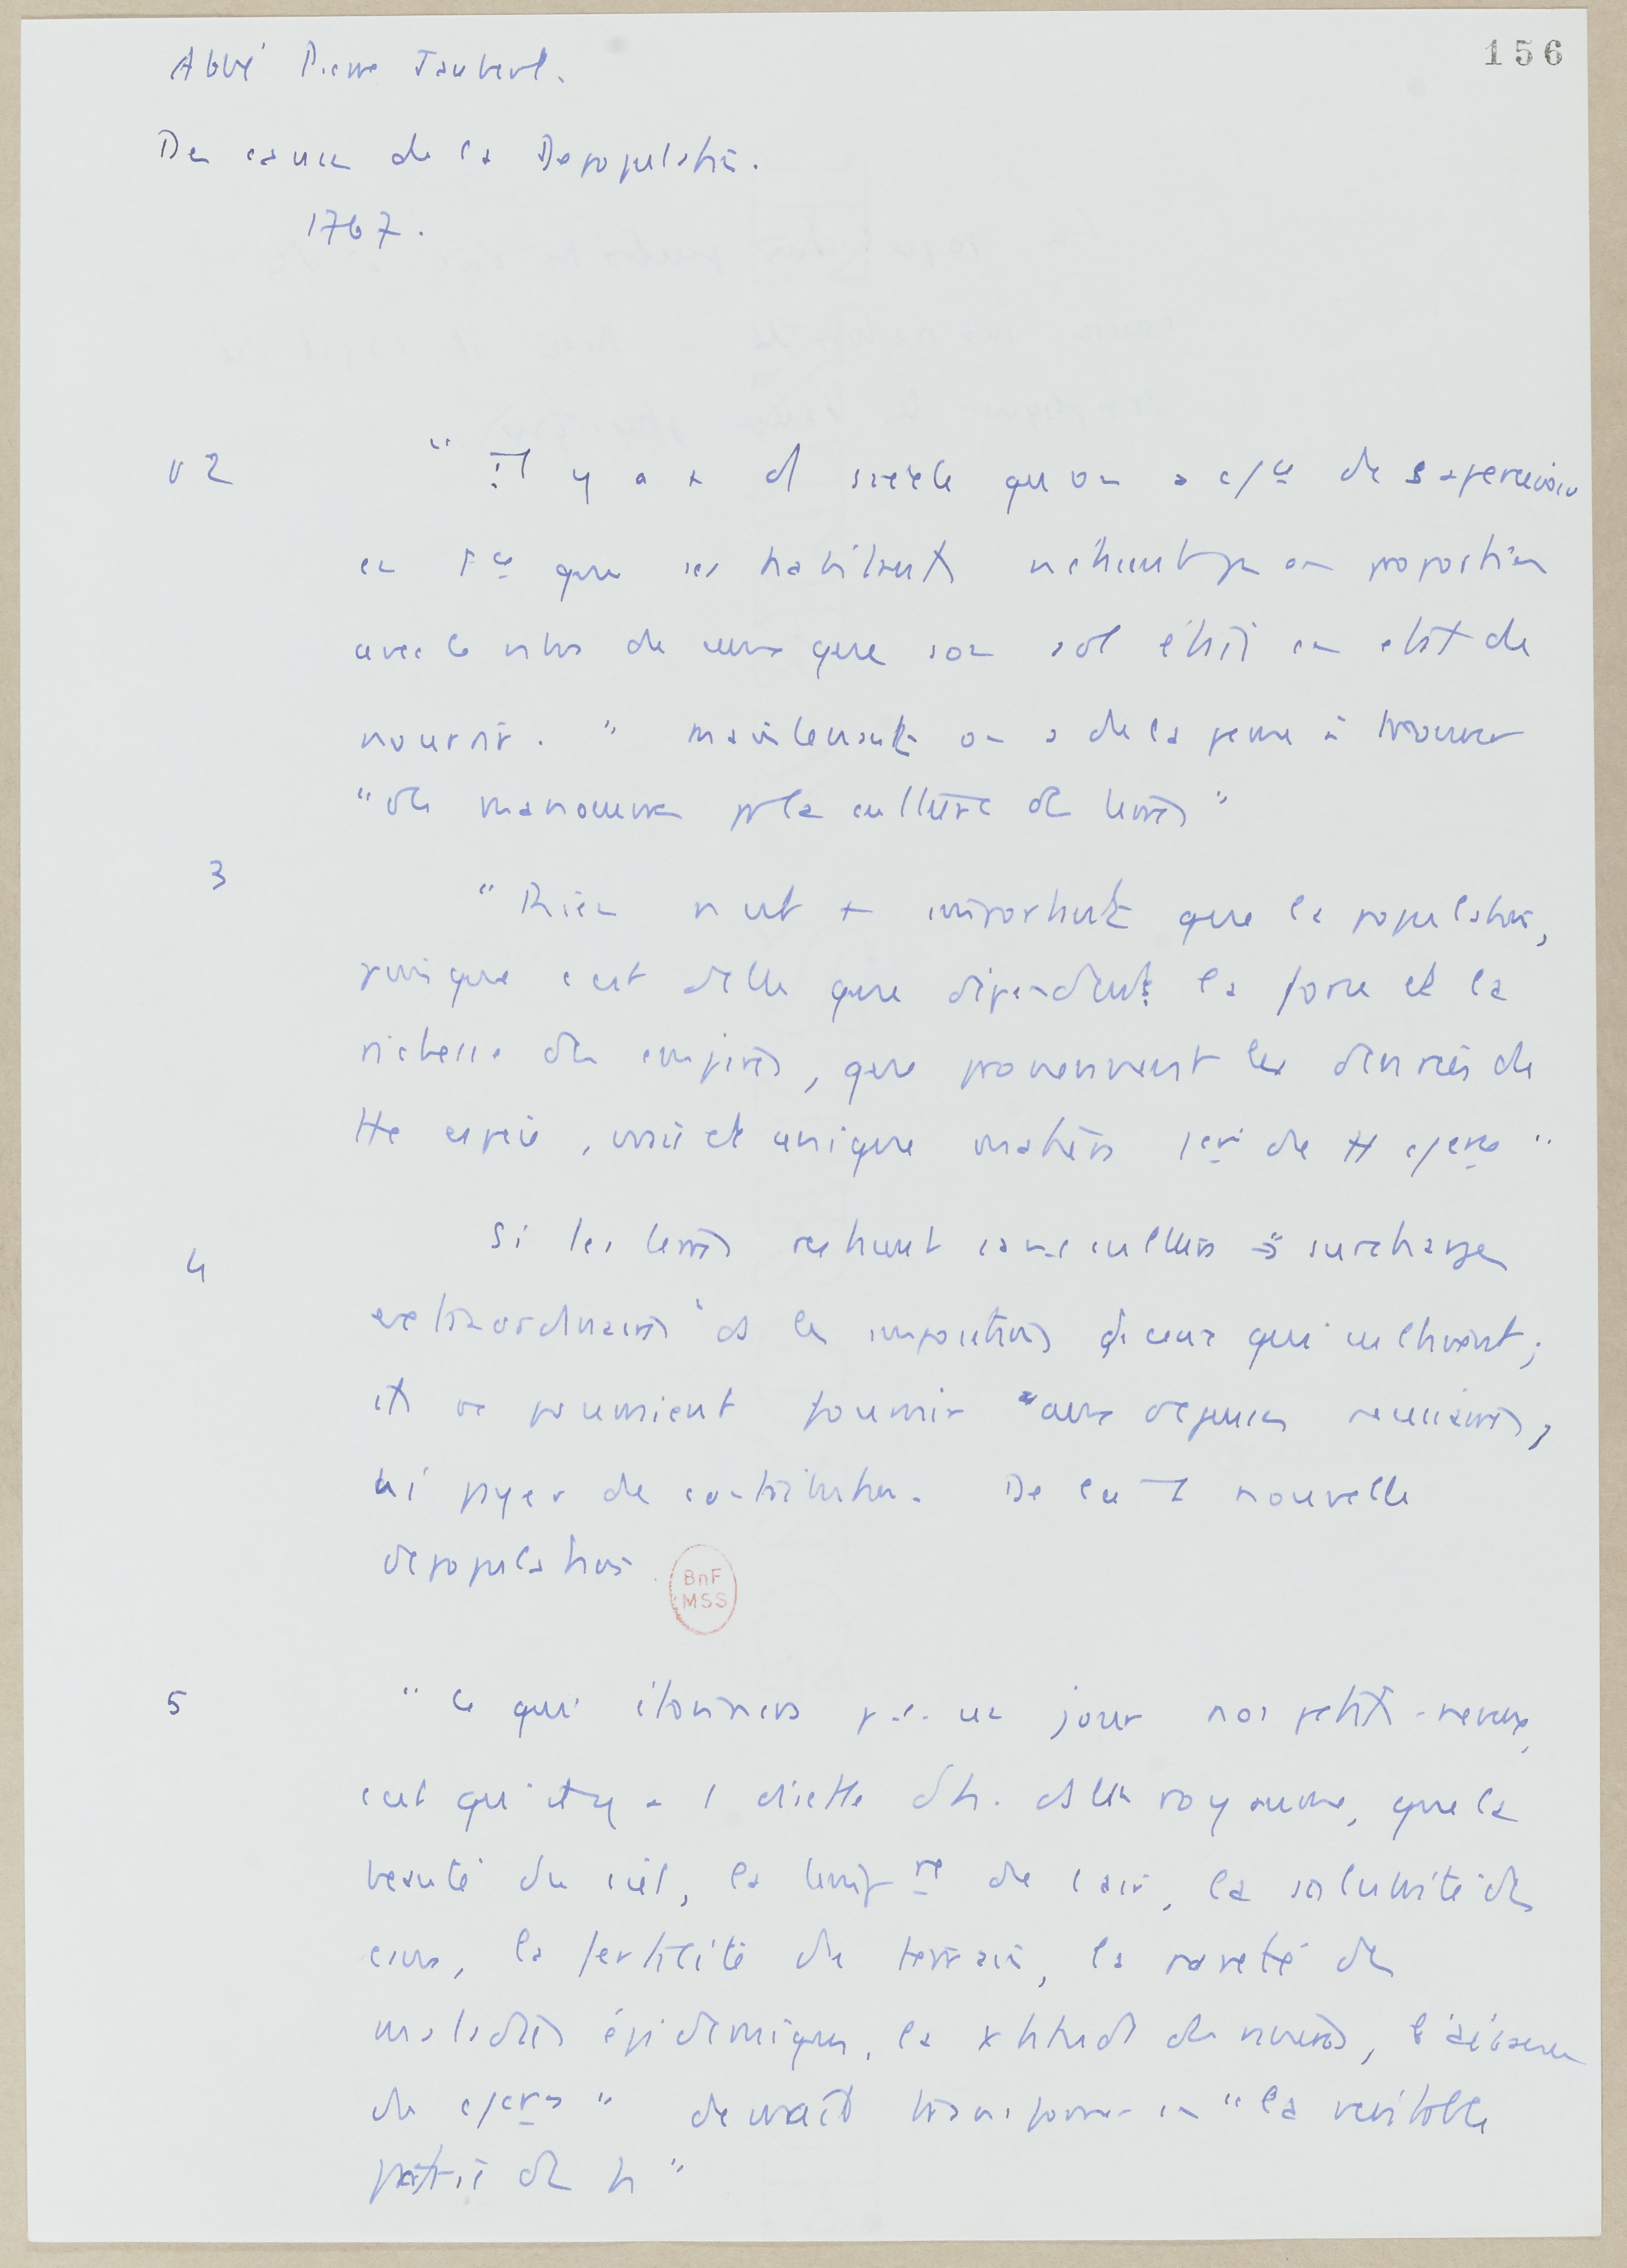 156
Abbé Pierre Jaubert.
Des causes de la Dépopulation.
1767.
v 2 " Il y a + d'1 siècle qu'on a c/ce de s'apercevoir
en Fce que ses habitants n'étaient pas en proportion
avec le nbre de ceux que son sol était en état de
nourrir. " maintenant on a de la peine à trouver
" des manœuvres pr la culture des terres "
3 " Rien n'est + important que la population,
puisque c'est d'elle que dépendent la force et la
richesse des empires, que proviennent les denrées de
tte espèce, vraie et unique matière 1ère de tt c/erce "
4 Si les terres restent sans culture → " surcharge
extraordinaire " ds les impositions de ceux qui cultivent;
ils ne pourraient fournir " aux dépenses nécessaires,
ni payer de contribution. De là 1 nouvelle
dépopulation
BnF
MSS
5 " Ce qui étonnera p.ê. un jour nos petits-neveux,
c'est qu'il y a 1 disette d'h. ds un royaume, que la
beauté du ciel, la tempre de l'air, la salubrité des
eaux, la fertilité du terrain, la rareté des
maladies épidémiques, la xtitude des rivières, l'aisance
du c/erce " devrait transformer en " la véritable
patrie des h "